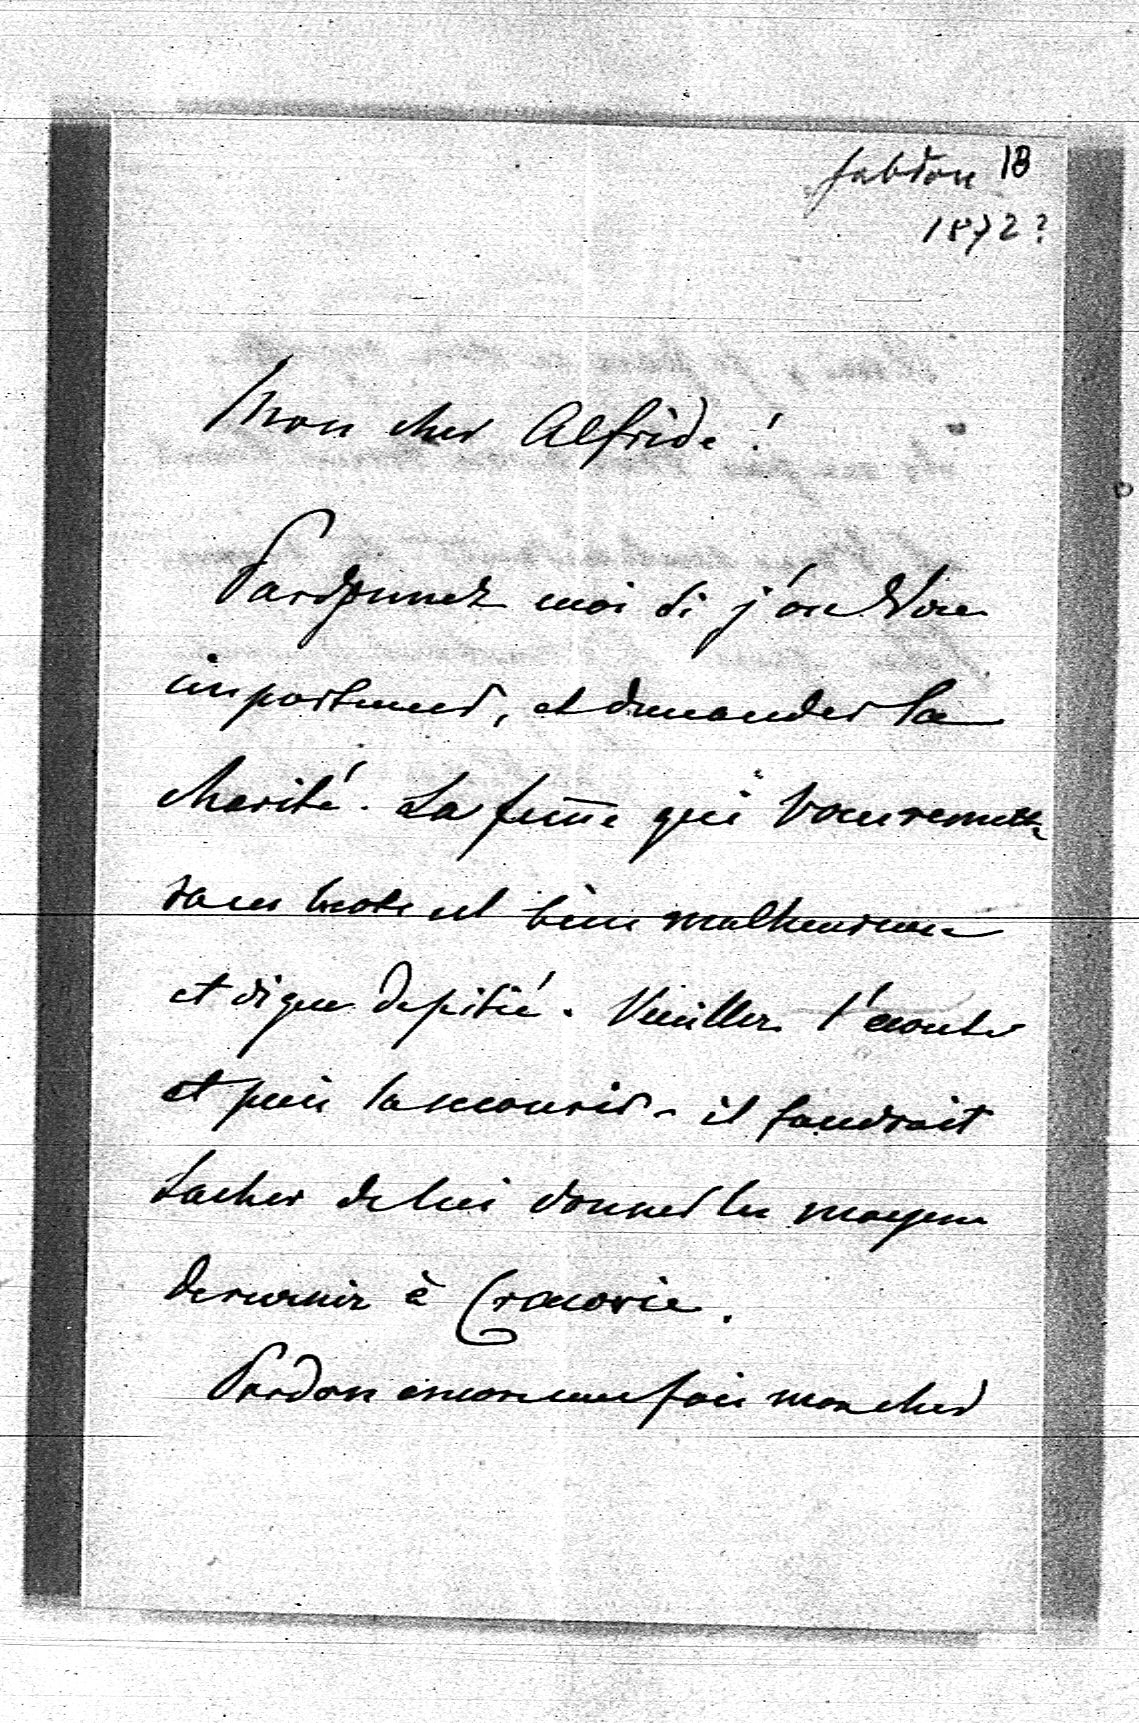 18
1872?
Mon cher Alfrède!
Pardonnez moi si j'ose Vous
importuner, et demander la
charité. La fem̄e qui Vous remettra
ces mots est bien malheureuse
et digne de pitié. Veuillez l'écouter
et puis la secourir - il faudrait
tacher de lui donner les moyens
de revenir à Cracovie.
Pardon encore une fois mon cher